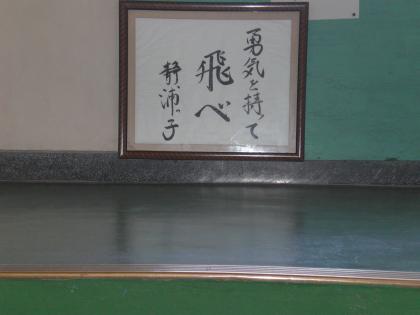 勇気を持って
飛べ
静浦っ子